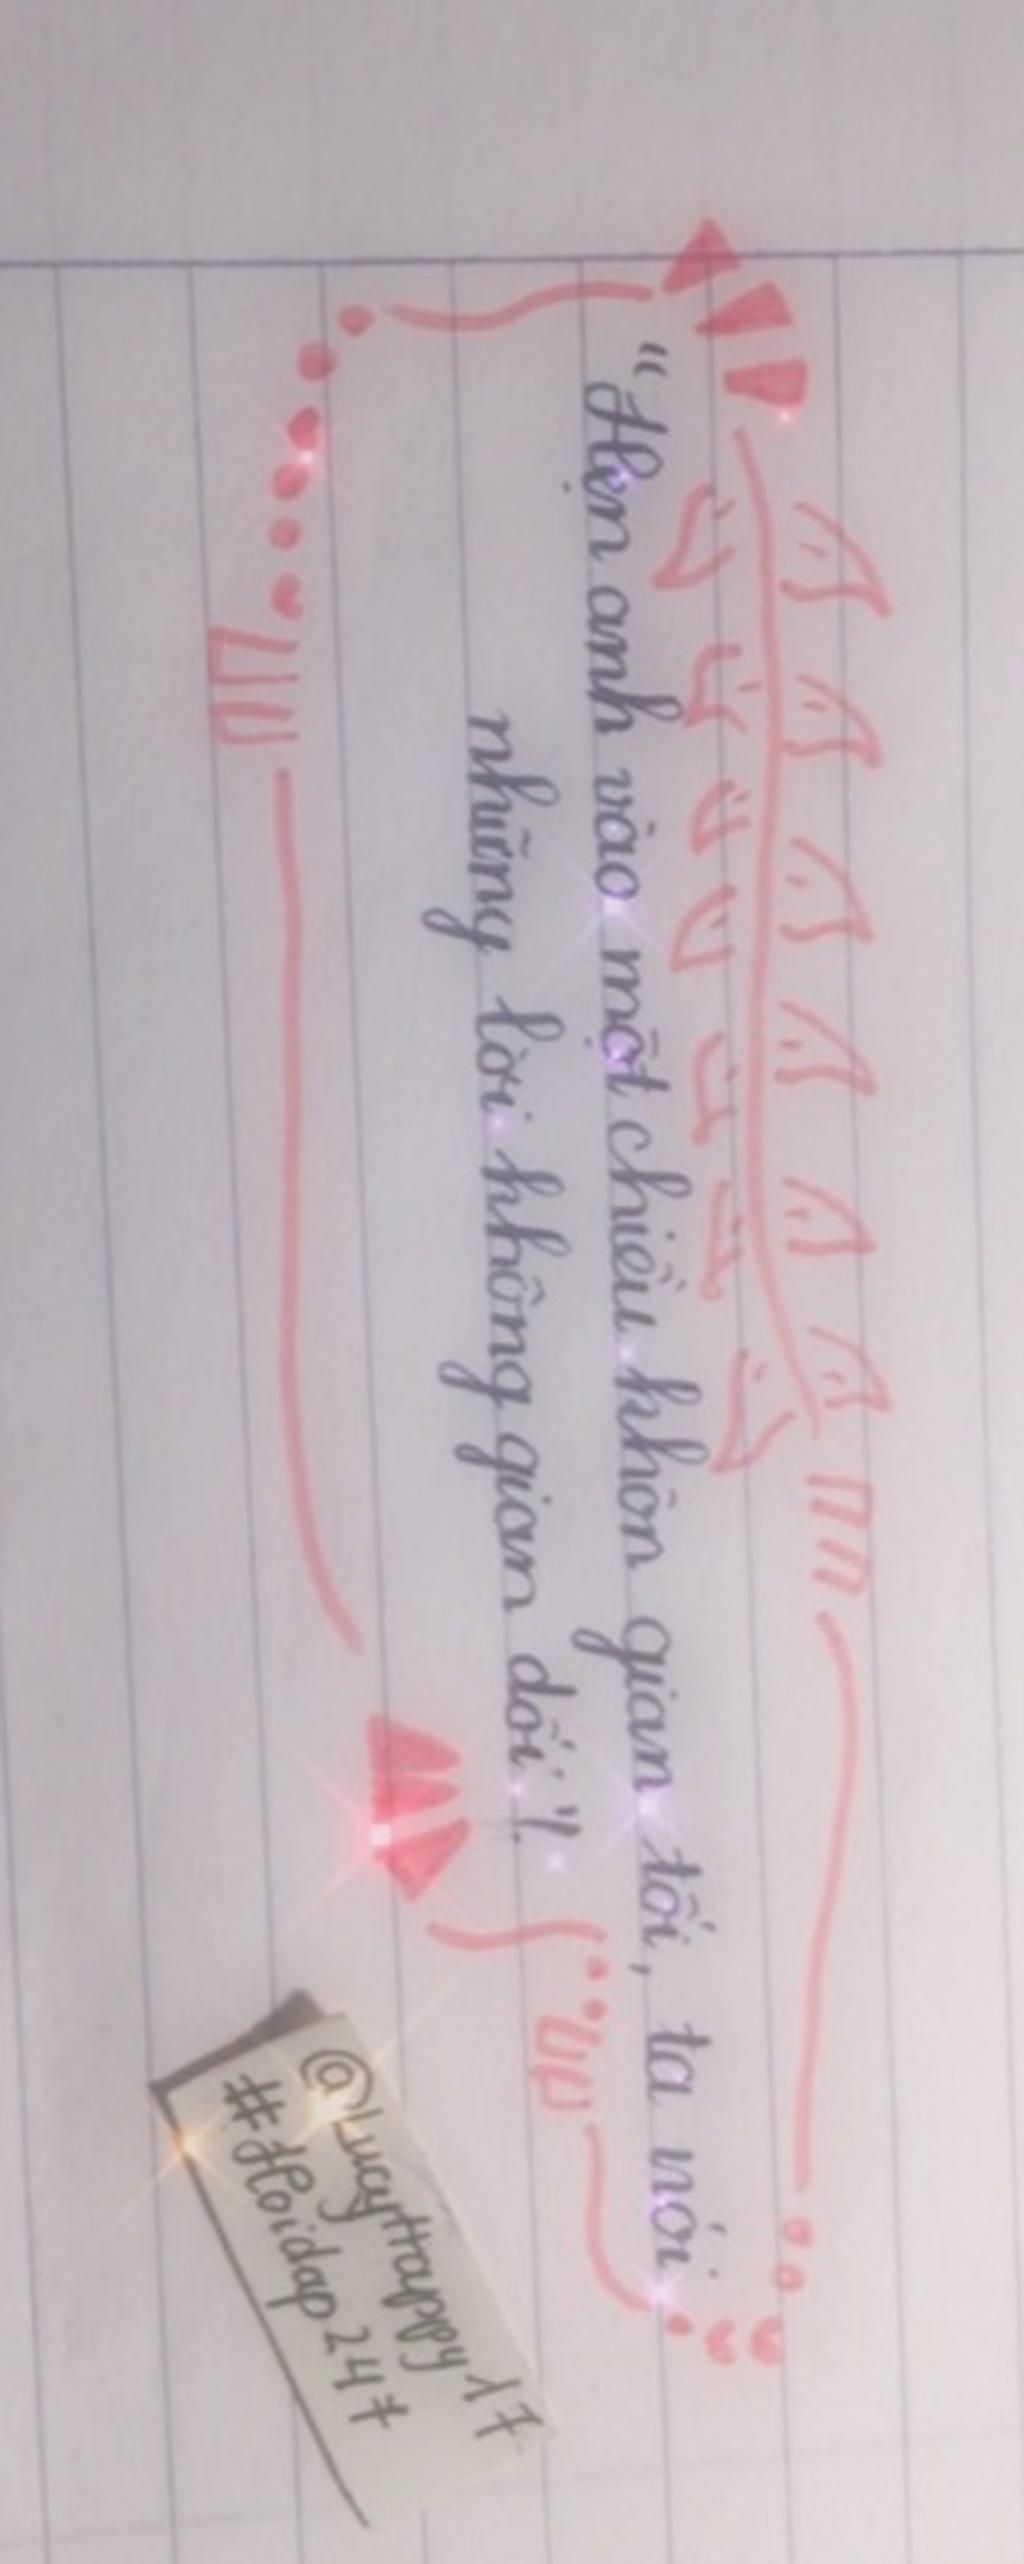 "Hẹn anh vào một chiều không gian tối, ta nói
những lời không gian dối".
@LucyHappy17
#Hoidap247